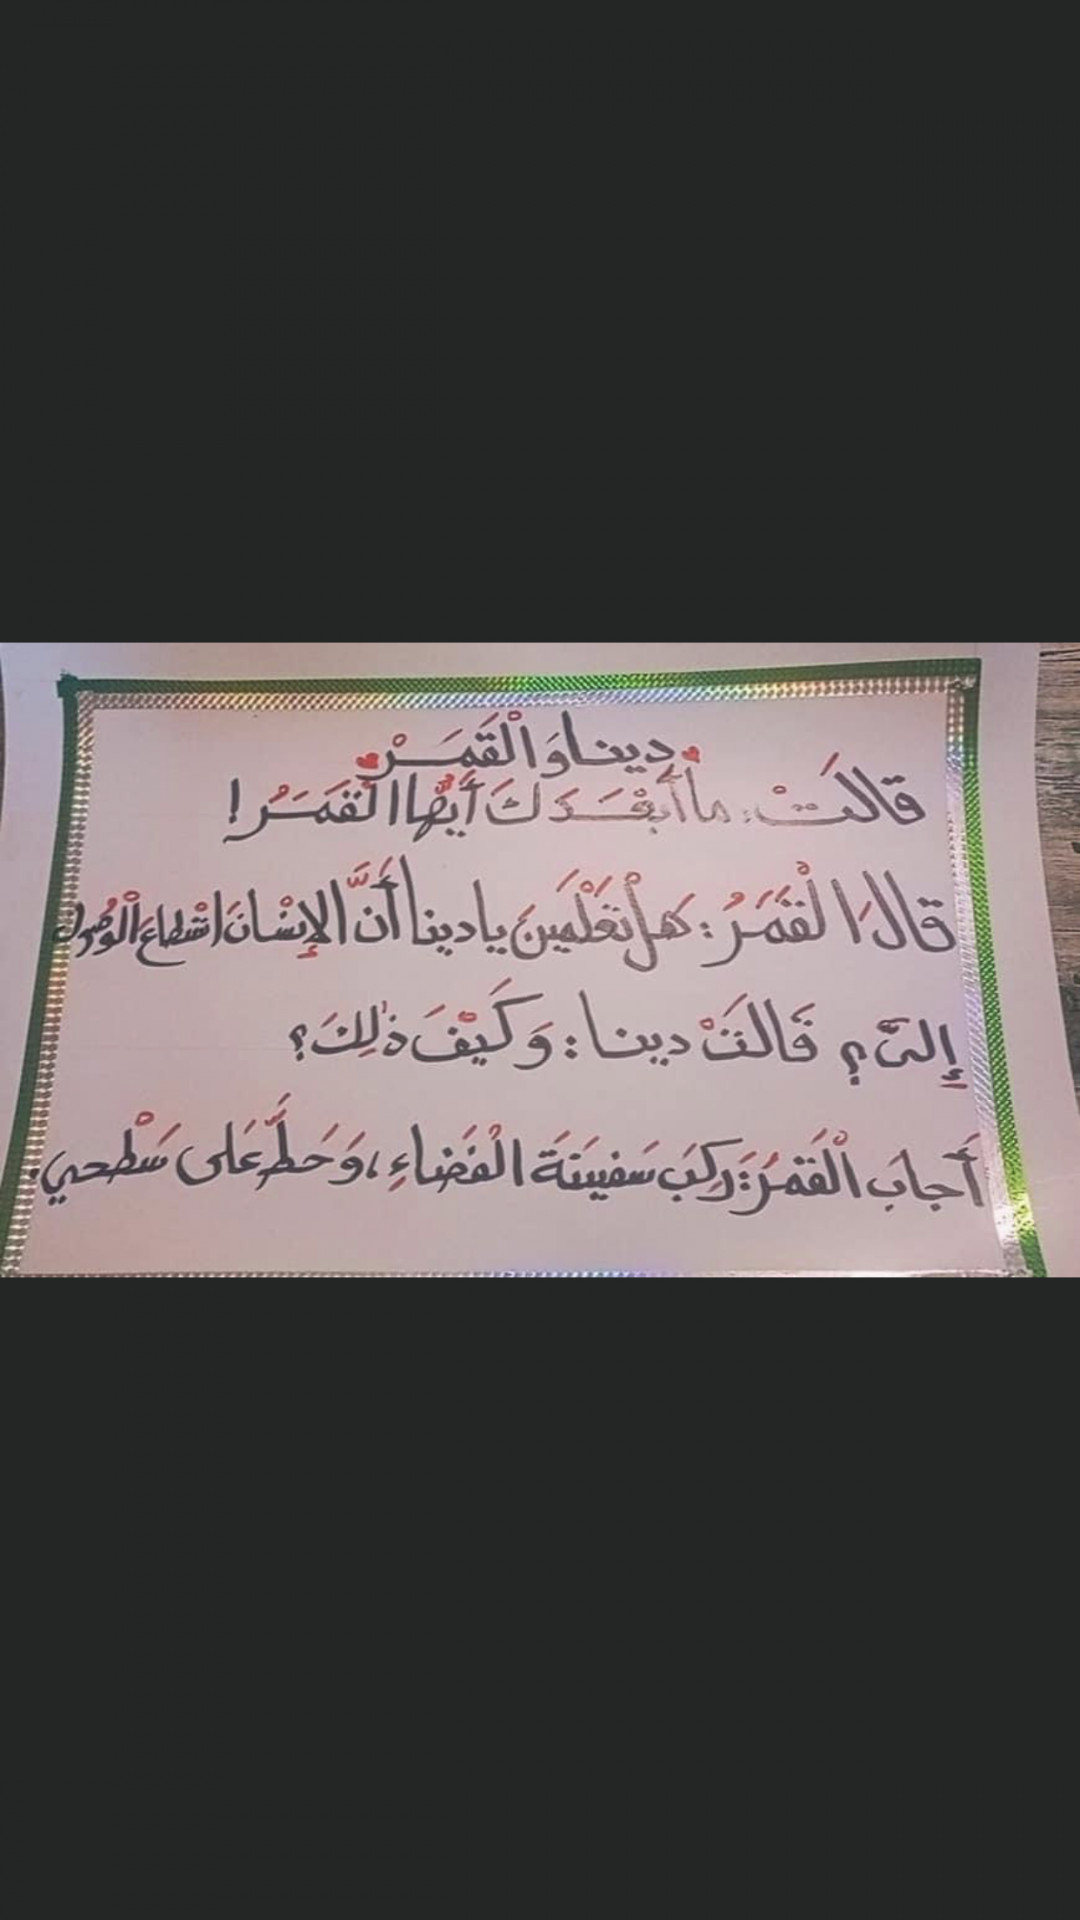 دينا وَ الْقَمَرْ
قالَتْ: ما أَبْعَدَكَ أَيُّها الْقَمَرُ!
قالَ الْقَمَرُ: هَلْ تَعْلَمينَ يا دينا أَنَّ الإِنْسانَ اسْتطاعَ الْوُصولَ
إِليَّ؟ قَالَتْ دينا: وَكَيْفَ ذٰلِكَ؟
أَجابَ الْقَمَرُ: رَكِبَ سَفينَةَ الْفَضاءِ، وَحَطَّ عَلى سَطْحي.